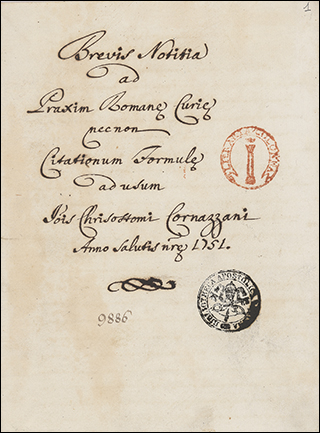 1
Brevis Notitia
ad
Praxim Romanę Curię
necnon
Citationum Formulę
ad usum
Jõis Chrisostomi Cornazzani
Anno salutis nr̃ę 1751.
9886